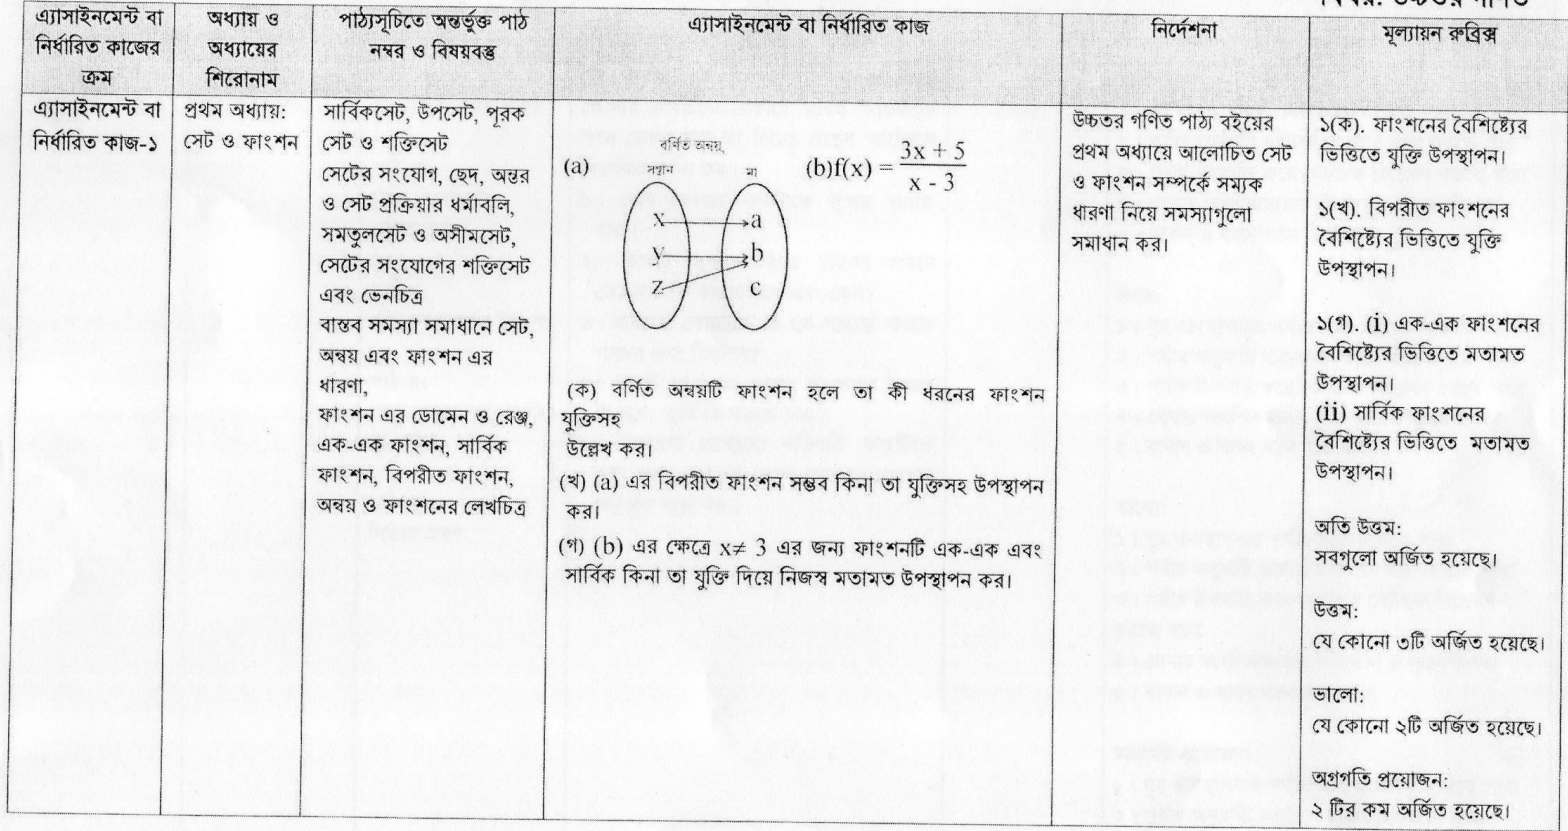 বিষয়: উচ্চতর গণিত
এ্যাসাইনমেন্ট বা
নির্ধারিত কাজের
ক্রম
অধ্যায় ও
অধ্যায়ের
শিরোনাম
পাঠ্যসূচিতে অন্তর্ভুক্ত পাঠ
নম্বর ও বিষয়বস্তু
এ্যাসাইনমেন্ট বা নির্ধারিত কাজ
নির্দেশনা
মূল্যায়ন রুব্রিক্স
এ্যাসাইনমেন্ট বা
নির্ধারিত কাজ-১
প্রথম অধ্যায়:
সেট ও ফাংশন
সার্বিকসেট, উপসেট, পূরক
সেট ও শক্তিসেট
সেটের সংযোগ, ছেদ, অন্তর
ও সেট প্রক্রিয়ার ধর্মাবলি,
সমতুলসেট ও অসীমসেট,
সেটের সংযোগের শক্তিসেট
এবং ভেনচিত্র
বাস্তব সমস্যা সমাধানে সেট,
অন্বয় এবং ফাংশন এর
ধারণা,
ফাংশন এর ডোমেন ও রেঞ্জ,
এক-এক ফাংশন, সার্বিক
ফাংশন, বিপরীত ফাংশন,
অন্বয় ও ফাংশনের লেখচিত্র
বর্ণিত অন্বয়,
(a) সন্তান মা (b)f(x) = 3x + 5
x - 3
x a
y b
z c
(ক) বর্ণিত অন্বয়টি ফাংশন হলে তা কী ধরনের ফাংশন
যুক্তিসহ
উল্লেখ কর।
(খ) (a) এর বিপরীত ফাংশন সম্ভব কিনা তা যুক্তিসহ উপস্থাপন
কর।
(গ) (b) এর ক্ষেত্রে x≠ 3 এর জন্য ফাংশনটি এক-এক এবং
সার্বিক কিনা তা যুক্তি দিয়ে নিজস্ব মতামত উপস্থাপন কর।
উচ্চতর গণিত পাঠ্য বইয়ের
প্রথম অধ্যায়ে আলোচিত সেট
ও ফাংশন সম্পর্কে সম্যক
ধারণা নিয়ে সমস্যাগুলো
সমাধান কর।
১(ক). ফাংশনের বৈশিষ্ট্যের
ভিত্তিতে যুক্তি উপস্থাপন।
১(খ). বিপরীত ফাংশনের
বৈশিষ্ট্যের ভিত্তিতে যুক্তি
উপস্থাপন।
১(গ). (i) এক-এক ফাংশনের
বৈশিষ্ট্যের ভিত্তিতে মতামত
উপস্থাপন।
(ii) সার্বিক ফাংশনের
বৈশিষ্ট্যের ভিত্তিতে মতামত
উপস্থাপন।
অতি উত্তম:
সবগুলো অর্জিত হয়েছে।
উত্তম:
যে কোনো ৩টি অর্জিত হয়েছে।
ভালো:
যে কোনো ২টি অর্জিত হয়েছে।
অগ্রগতি প্রয়োজন:
২ টির কম অর্জিত হয়েছে।